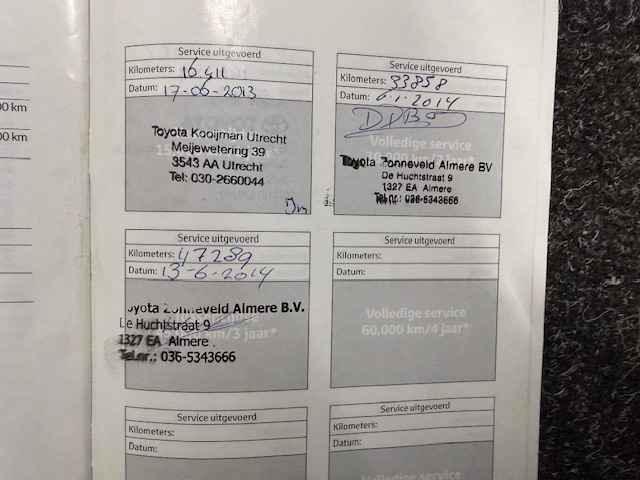 00 km
00 km
Service uitgevoerd
Kilometers: 16.411
Datum: 17-06-2013
Toyota Kooijman Utrecht
Meijewetering 39
3543 AA Utrecht
Tel: 030-2660044
Service uitgevoerd
Kilometers: 33858
Datum: 6.1.2014
Volledige service
Toyota Zonneveld Almere BV
De Huchtstraat 9
1327 EA Almere
Tel.nr.: 036-5343666
Service uitgevoerd
Kilometers: 47289
Datum: 13-6-2014
Toyota Zonneveld Almere B.V.
De Huchtstraat 9
km/3 jaar*
1327 EA Almere
Tel.nr.: 036-5343666
Service uitgevoerd
Kilometers:
Datum:
Volledige service
60.000 km/4 jaar*
Service uitgevoerd
Kilometers:
Datum:
Service uitgevoerd
Kilometers:
Datum:
Volledige service